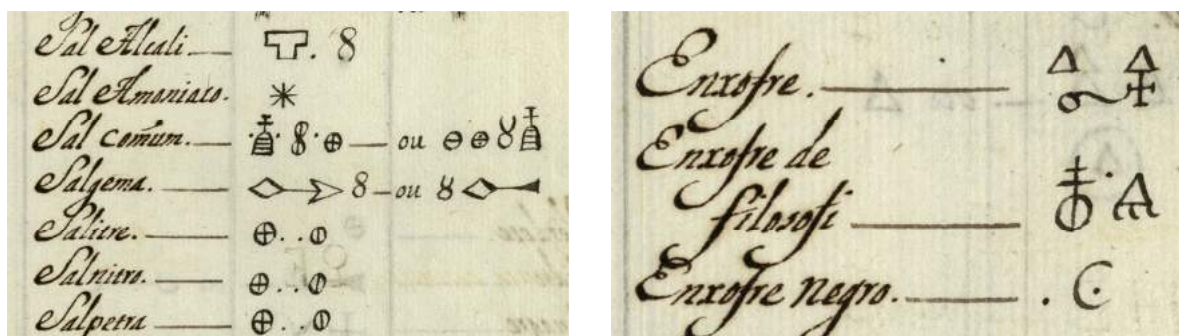 Sal Alcali.
Sal Amoniaco.
Sal comũm. ou
Salgema. ou
Salitre.
Salnitro.
Salpetra
Enxofre.
Enxofre de
filosofi
Enxofre negro.